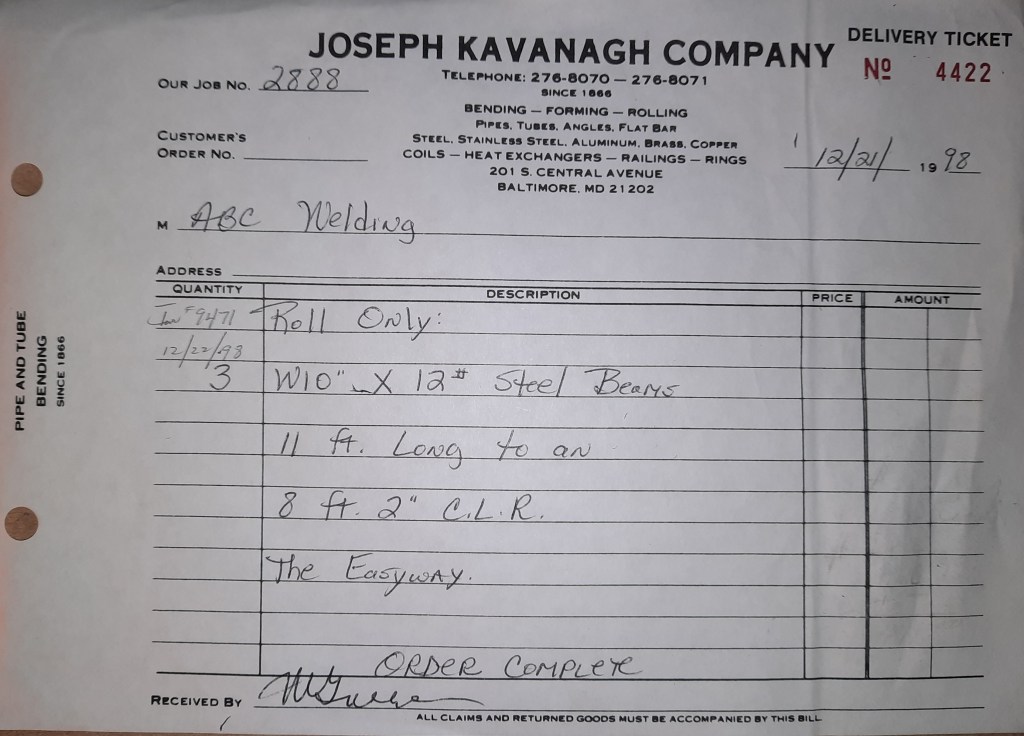 JOSEPH KAVANAGH COMPANY
DELIVERY TICKET
Nº 4422
OUR JOB NO. 2888
TELEPHONE: 276-8070 — 276-8071
SINCE 1866
BENDING — FORMING — ROLLING
PIPES, TUBES, ANGLES, FLAT BAR
CUSTOMER'S
ORDER NO.
STEEL, STAINLESS STEEL, ALUMINUM, BRASS, COPPER
COILS — HEAT EXCHANGERS — RAILINGS — RINGS
201 S. CENTRAL AVENUE
BALTIMORE, MD 21202
12/21/ 1998
M ABC Welding
ADDRESS
QUANTITY DESCRIPTION PRICE AMOUNT
# 9471 Roll Only:
12/22/98
3 W10" X 12# Steel Beams
11 ft. Long to an
8 ft. 2" C.L.R.
The Easyway.
ORDER COMPLETE
RECEIVED BY
ALL CLAIMS AND RETURNED GOODS MUST BE ACCOMPANIED BY THIS BILL
PIPE AND TUBE
BENDING
SINCE 1866